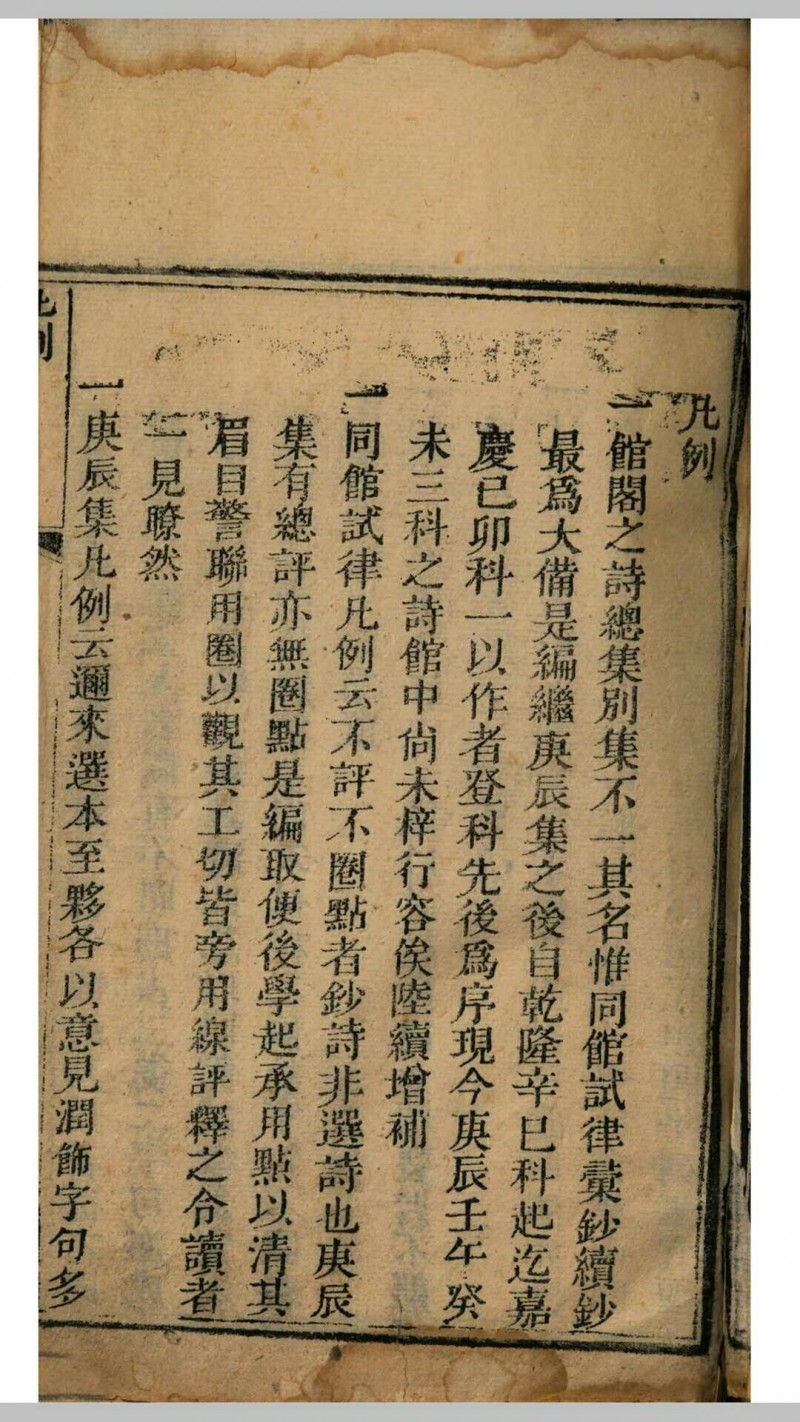 凡例
一館閣之詩總集別集不一其名惟同館試律彙鈔續鈔
最爲大備是編繼庚辰集之後自乾隆辛巳科起迄嘉
慶己卯科一以作者登科先後爲序現今庚辰壬午癸
未三科之詩館中尙未梓行容俟陸續增補
一同館試律凡例云不評不圈點者鈔詩非選詩也庚辰
集有總評亦無圈點是編取便後學起承用點以清其
眉目警聯用圈以觀其工切皆旁用線評釋之令讀者
一見瞭然
一庚辰集凡例云邇來選本至夥各以意見潤飾字句多
凡例